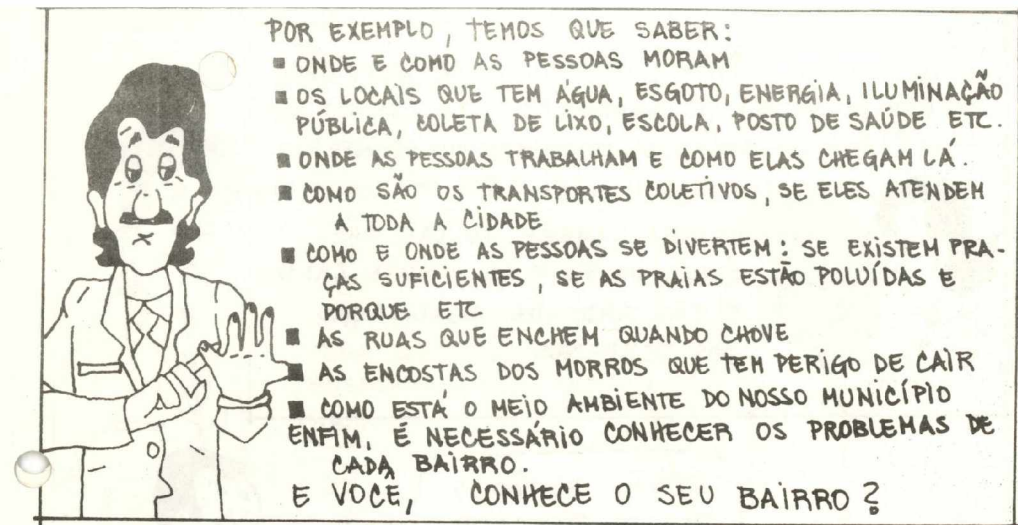 POR EXEMPLO, TEMOS QUE SABER:
■ ONDE E COMO AS PESSOAS MORAM
■ OS LOCAIS QUE TEM ÁGUA, ESGOTO, ENERGIA, ILUMINAÇÃO
PÚBLICA, COLETA DE LIXO, ESCOLA, POSTO DE SAÚDE ETC.
■ ONDE AS PESSOAS TRABALHAM E COMO ELAS CHEGAM LÁ.
■ COMO SÃO OS TRANSPORTES COLETIVOS, SE ELES ATENDEM
A TODA A CIDADE
■ COMO E ONDE AS PESSOAS SE DIVERTEM: SE EXISTEM PRA-
ÇAS SUFICIENTES, SE AS PRAIAS ESTÃO POLUÍDAS E
PORQUE ETC
■ AS RUAS QUE ENCHEM QUANDO CHOVE
■ AS ENCOSTAS DOS MORROS QUE TEM PERIGO DE CAIR
■ COMO ESTÁ O MEIO AMBIENTE DO NOSSO MUNICÍPIO
ENFIM, É NECESSÁRIO CONHECER OS PROBLEMAS DE
CADA BAIRRO.
E VOCÊ, CONHECE O SEU BAIRRO?